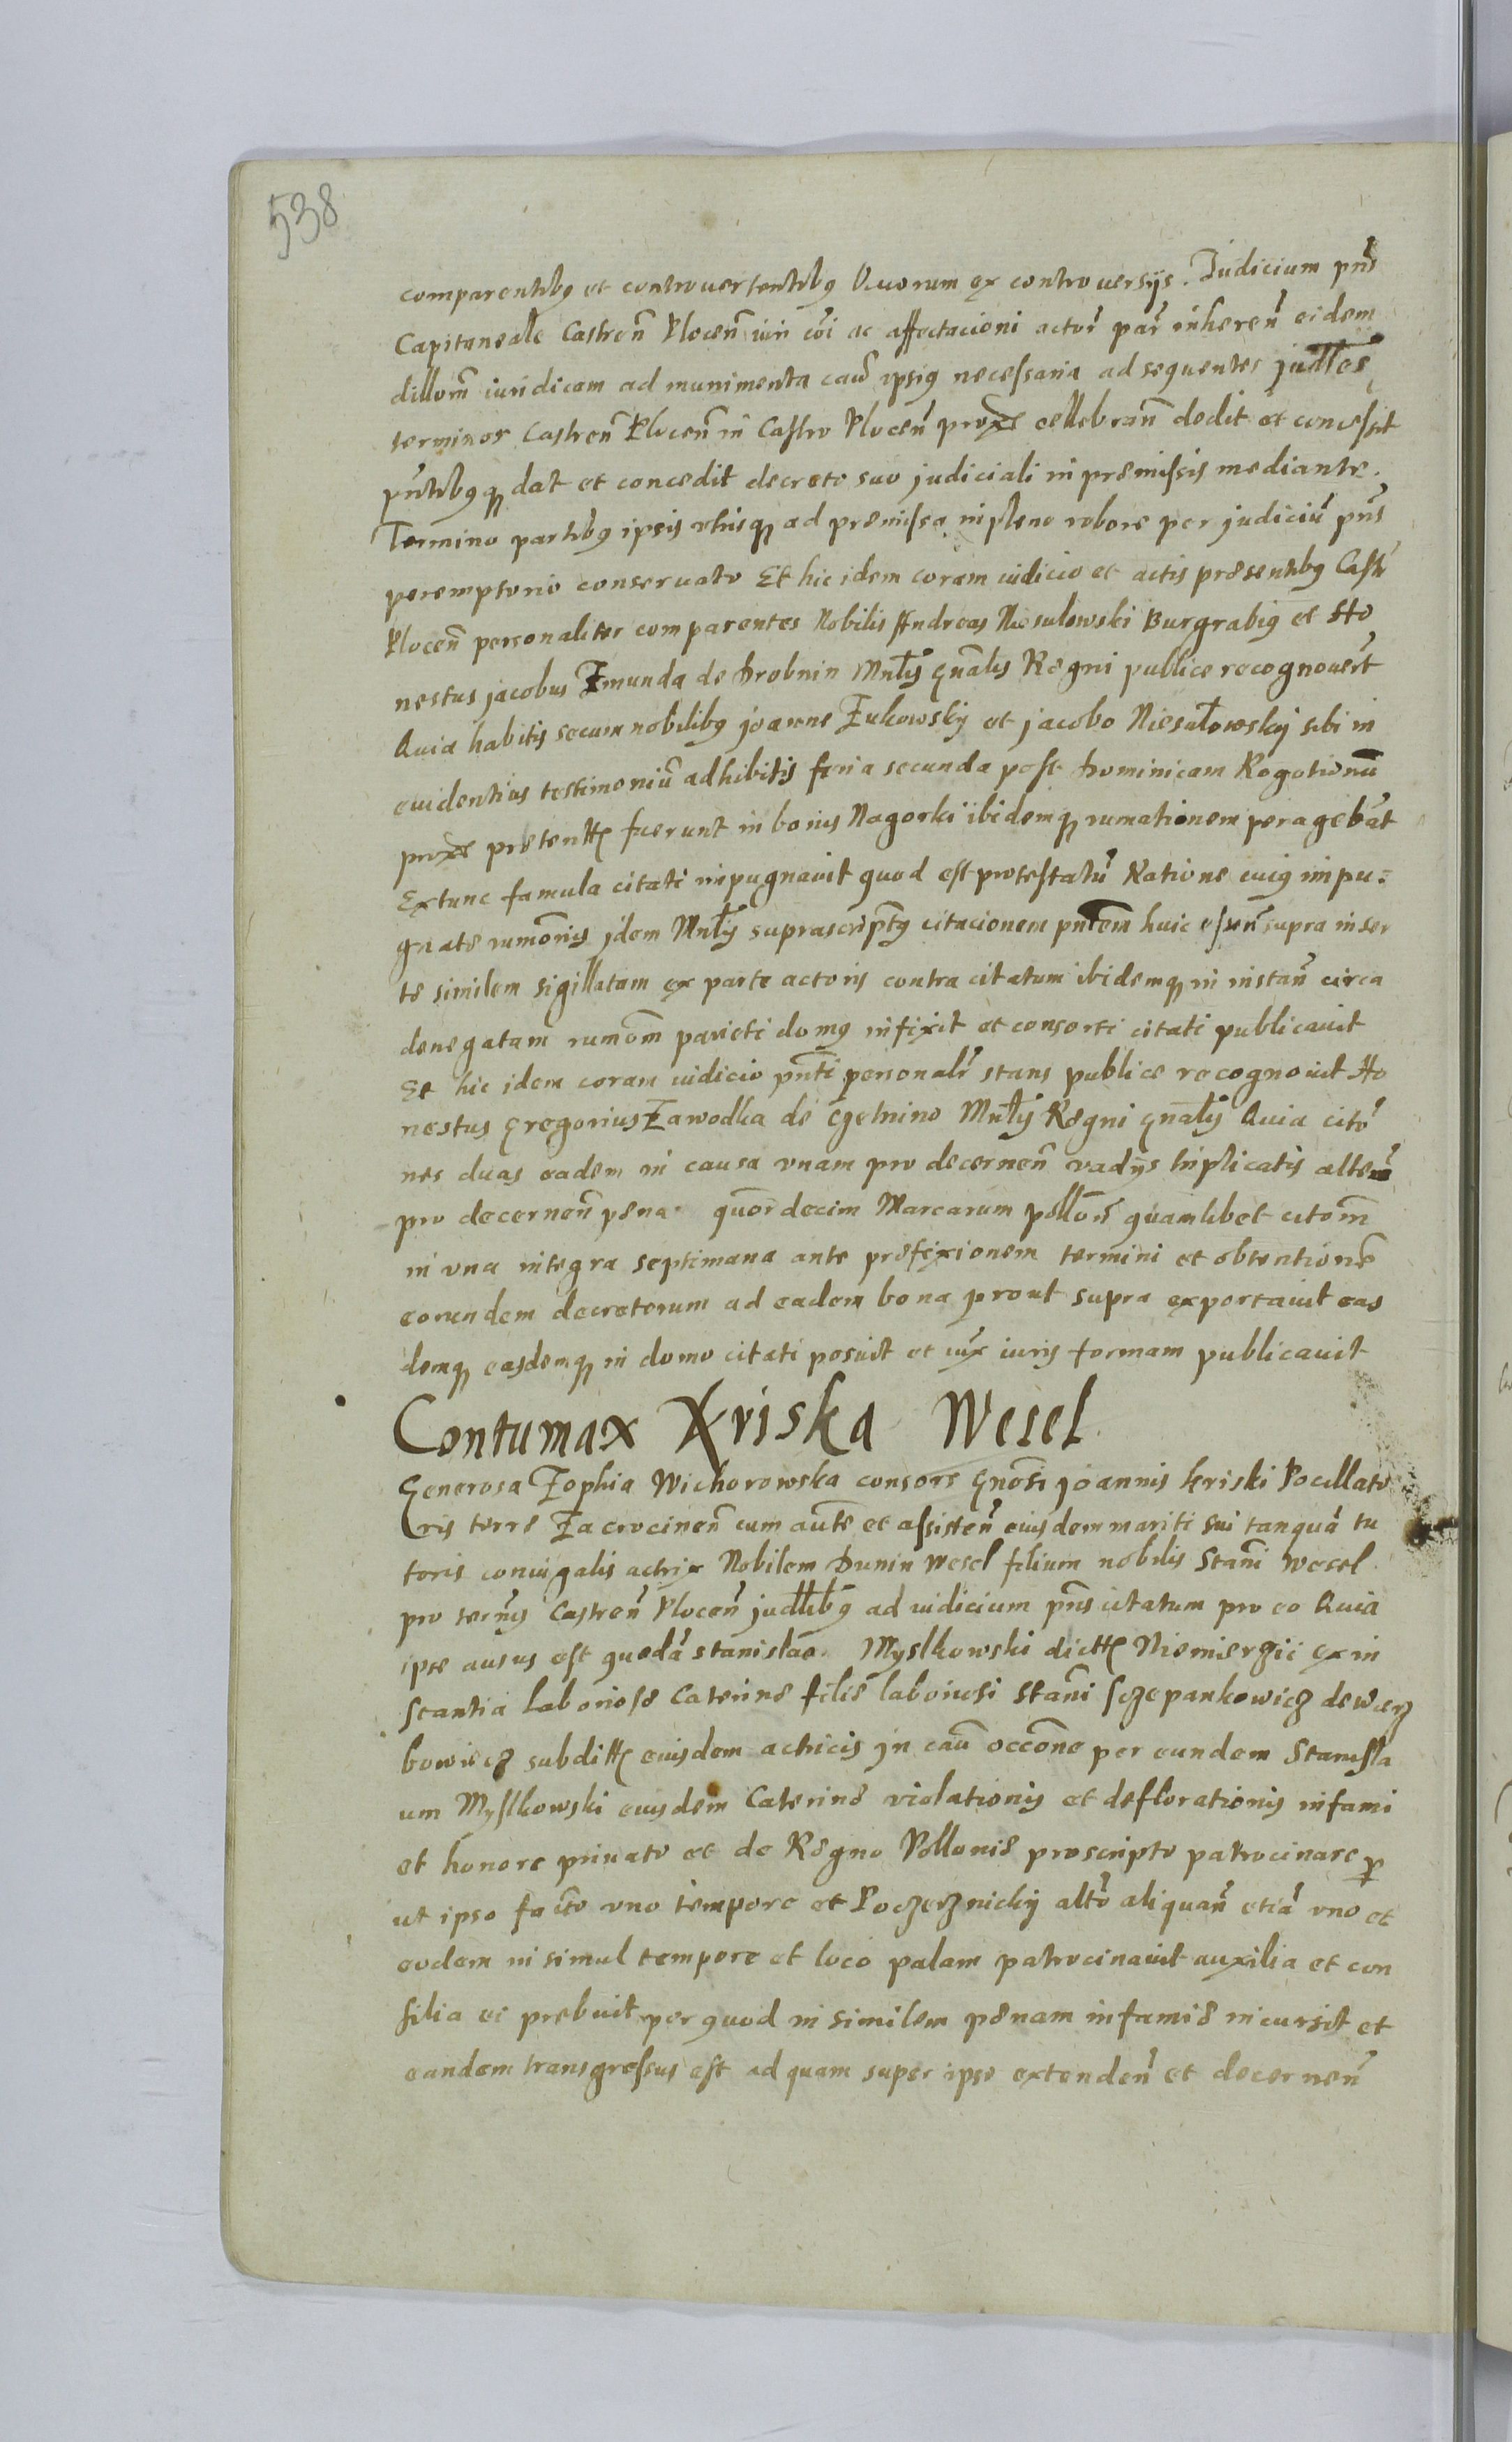 538
comparentibꝫ et controuertentibꝫ Quorum ex controuersijs. Iudicium pñs
Capitaneale Castreñ Ploceñ iuri cõi ac affectacioni actoř pař inhereñ eidem
dillom̃ iuridicam ad munimenta caũ ipsiꝫ necessaria ad sequentes judłes
terminos Castreñ Ploceñ in Castro Plocen̄ proxe cellebrañ dedit et concessit
pñtibꝫqꝫ dat et concedit decreto suo judiciali in premissis mediante.
Termino partibꝫ ipsis vtrisqꝫ ad premissa in pleno robore per judiciũ pñs
peremptorio conseruato Et hic idem coram iudicio et actis presentibꝫ Castř
Plocen̄ personaliter comparentes Nobilis Andreas Niesulowski Burgrabiꝫ et Ho
nestus jacobus Zmunda de Drobnin Mnłis gñalis Regni publice recognouert
Quia habitis secum nobilibꝫ joanne Zukowskÿ et jacobo Niesałowskÿ sibi in
euidentius testimoniũ adhibitis feria secunda post Dominicam Rogationũ
proxe preteritt fuerunt in bonis Nagorki ibidemqꝫ rumationem peragebãt
Extunc famula citati inpugnauit quod est protestatũ Ratione cuiꝫ impu=
gnate rumõnis jdem Mnłis suprascriptꝫ citacionem pñtem huic supra inser
te similem sigillatam ex parte actoris contra citatum ibidemqꝫ in instañ circa
denegatam rumom̃ parieti domꝫ infixit et consorti citati publicauit
Et hic idem coram iudicio pñti personalr̃ stans publice recognouit Ho
nestus Gregorius Zawodka de Mnłis Regni gñalis Quia cito
nes duas eadem in causa vnam pro decerneñ vadijs triplicatis alterã
pro decerneñ pena quor̃decim Marcarum pollon̄ quamlibet citom̃
in vna integra septimana ante prefixionem termini et obtentionẽ
eorundem decretorum ad eadem bona prout supra exportauit eas
demqꝫ easdemqꝫ in domo citati posuit et iux̃ iuris formam publicauit
Contumax Kriska Wesel
Generosa Zophia Wichorowska consors Gnõsi joannis kriski Pocillato
ris terre Zacrocineñ cum aut̃e et assisteñ eiusdem mariti sui tanquã tu
toris coniugalis actrix Nobilem Dunin Wesel filium nobilis Stan̄i Wesel
pro termis Castren̄ Plocen̄ judłibꝫ ad iudicium pñs citatum pro eo Quia
ipse ausus est quedã stanislao Myslkowski dictt Niemierzic ex in
stantia laboriose Caterine filie laboriosi Stan̄i Sczepankowicz de Wierz
bowiecz subditt eiusdem actricis jn caũ occõne per eundem Stanisla
um Myslkowski eiusdem Caterine violationis et deflorationis infami
et honore priuato et de Regno Pollonie proscripto patrocinare ꝓ
ut ipso facto vno tempore et Poczerznickÿ altõ aliquañ etiã vno et
eodem in simul tempore et loco palam patrocinauit auxilia et con
silia ei prebuit per quod in similem penam infamie incursit et
eandem transgressus est ad quam super ipso extenden̄ et decernen̄